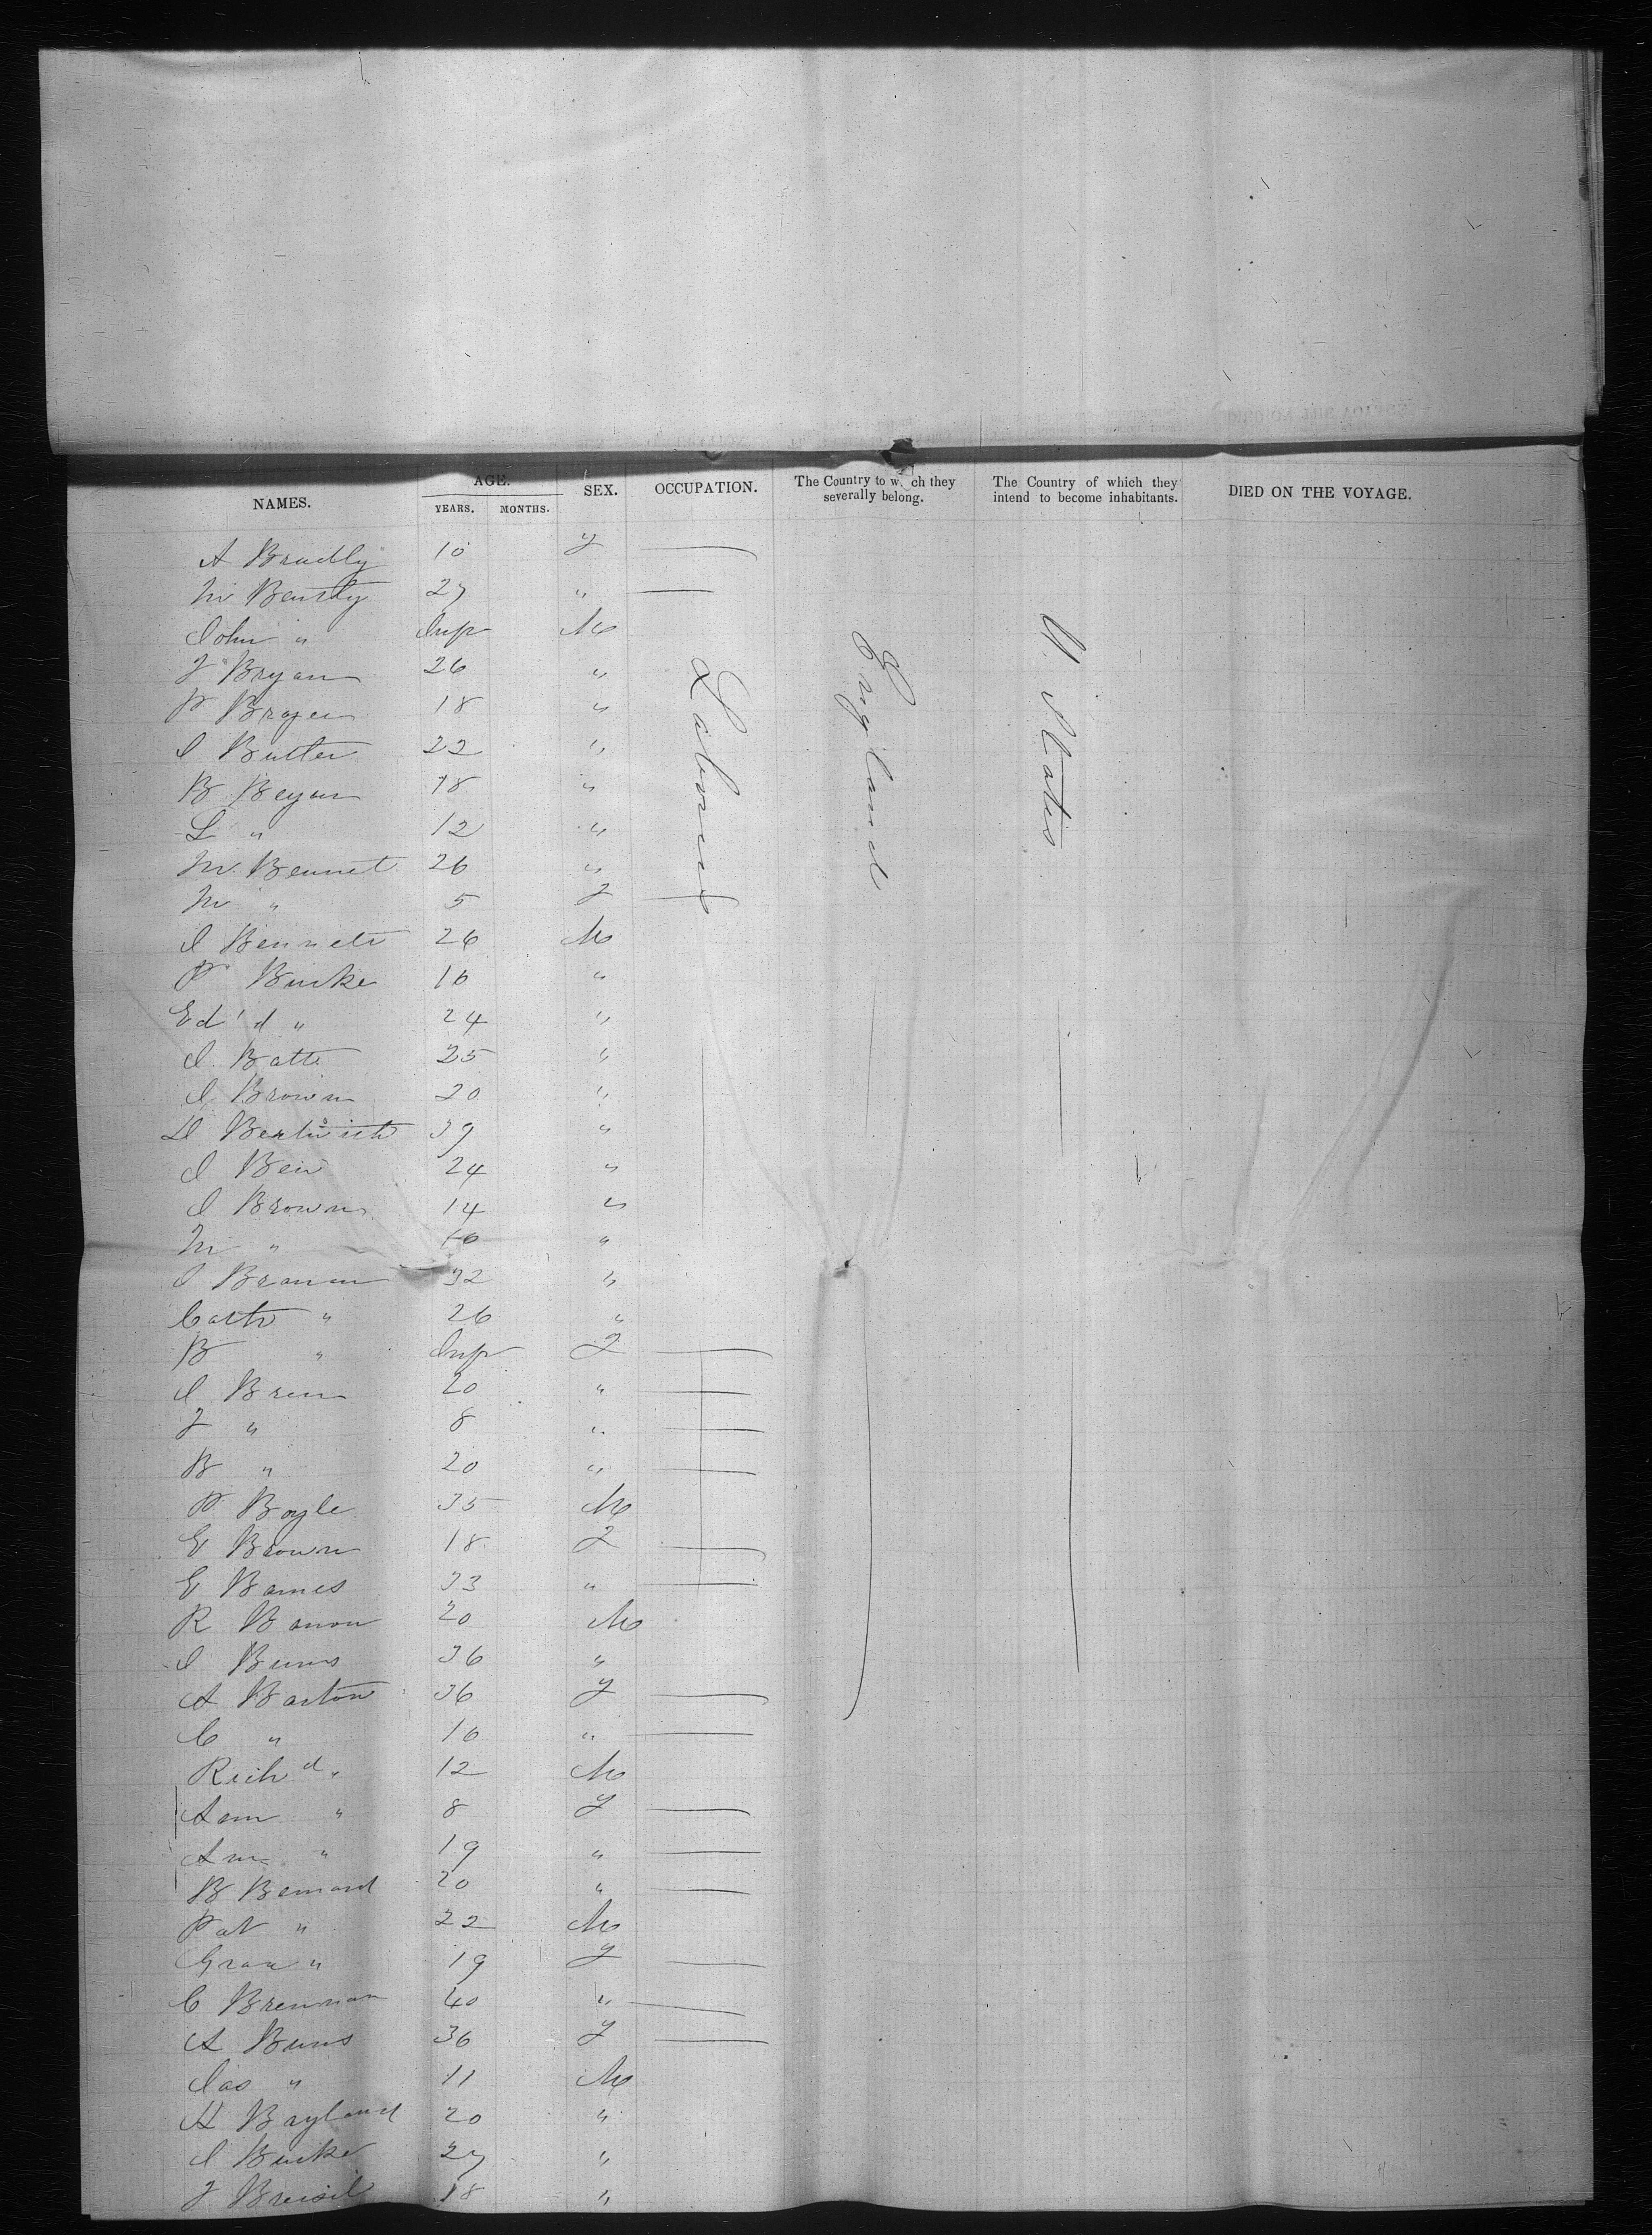 NAMES. AGE. SEX. OCCUPATION. The Country to w ch they severally belong. The Country of which they intend to become inhabitants. DIED ON THE VOYAGE.
YEARS. MONTHS.
A Bradly 10 F —
M 27 " —
John " Inf M
J Bryan 26 "
P 18 "
J Butler 22 "
B Bryan 18 "
L " 12 "
M Bennet 26 "
M " 5 F —
J Bennett 26 M
P Burke 16 "
Ed'd " 24 "
J Batte 25 "
J Brown 20 "
D 39 "
J 24 "
J Brown 14 "
M " 16 "
J 32 "
Cath " 26 "
B " Inf F —
J 20 " —
J " 8 " —
B " 20 " —
P Boyle 35 M
E Brown 18 F —
E Barnes 33 " —
R Banon 20 M
J Burns 36 "
A Barton 36 F —
C " 10 " —
Richd " 12 M
Ann " 8 F —
" 19 " —
B Bernard 20 " —
Pat " 22 M
" 19 F —
C Brennan 40 " —
A Burns 36 F —
Jas " 11 M
H Boyland 20 "
J Burke 27 "
J 18 "
Laborers
England
U. States